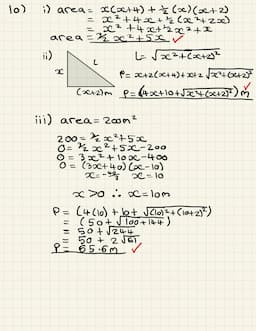 10) i) area = x(x+4) + ½(x)(x+2)
= x² + 4x + ½(x²+2x)
= x² + 4x + ½x² + x
area = 3/2 x² + 5x ✓
ii) L = √x²+(x+2)²
x L P = x+2(x+4)+x+2+√x²+(x+2)²
(x+2)m P = (4x+10+√x²+(x+2)²) m ✓
iii) area = 200m²
200 = 3/2 x² + 5x
0 = 3/2 x² + 5x - 200
0 = 3x² + 10x - 400
0 = (3x+40)(x-10)
x = -40/3 x = 10
x > 0 ∴ x = 10m
P = (4(10) + 10 + √(10)²+(10+2)²)
= (50 + √100+144)
= 50 + √244
= 50 + 2√61
P = 65.6m ✓